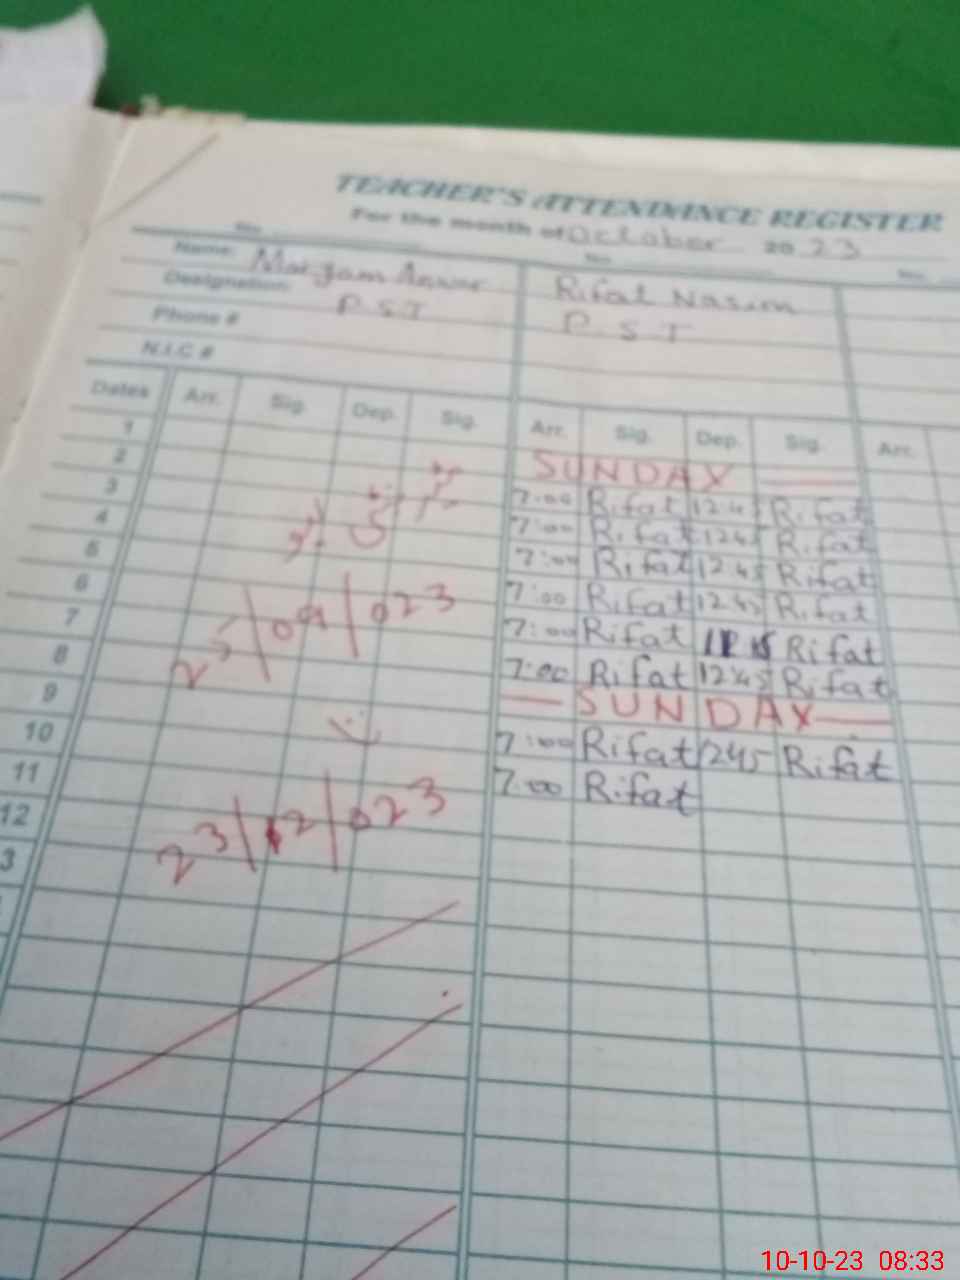 TEACHER'S ATTENDANCE REGISTER
For the month of October 2023
No. No. No.
Name: Maryam Rifat Nasim
Designation: P.S.T P.S.T
Phone #
N.I.C #
Dates Arr. Sig. Dep. Sig. Arr. Sig. Dep. Sig. Arr.
1 SUNDAY
2 7:00 Rifat 12:45 Rifat
3 7:00 Rifat 1245 Rifat
4 7:00 Rifat 12:45 Rifat
5 7:00 Rifat 12:45 Rifat
6 7:00 Rifat Rifat
7 7:00 Rifat 12:45 Rifat
8 SUNDAY
9 7:00 Rifat 1245 Rifat
10 7:00 Rifat
11
12
3
25/09/023
23/12/023
10-10-23 08:33